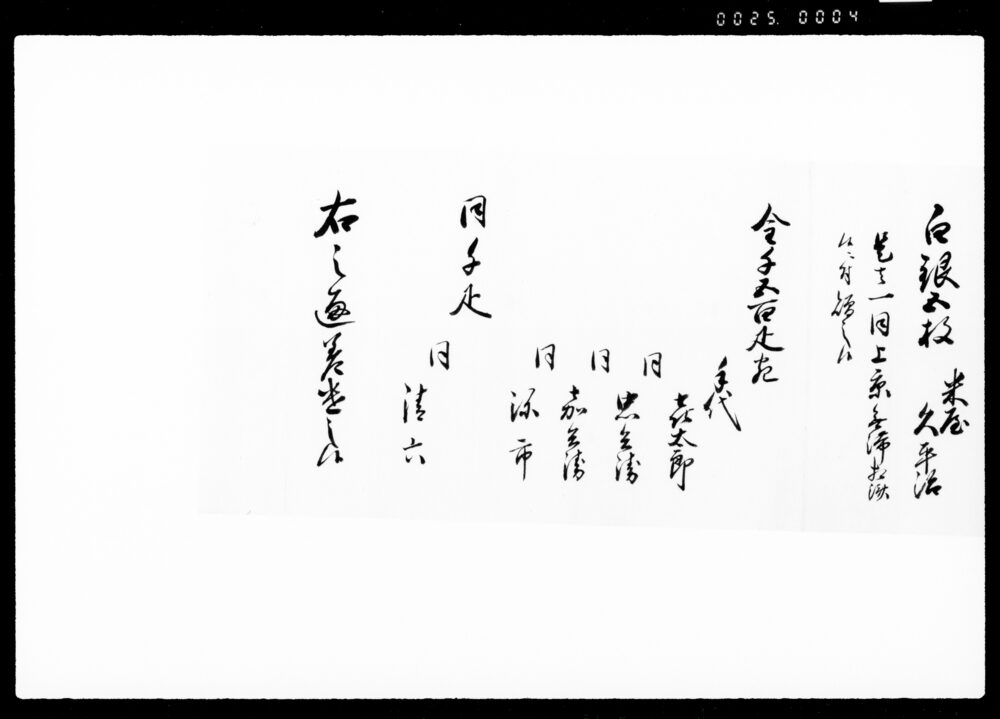 0025. 0004
白銀五枚
米屋
久平治
一同上京無滞相済
候ニ付
金千五百疋宛
手代
喜太郎
同
忠兵衛
同
嘉兵衛
同
弥市
同千疋
同
清六
右之通